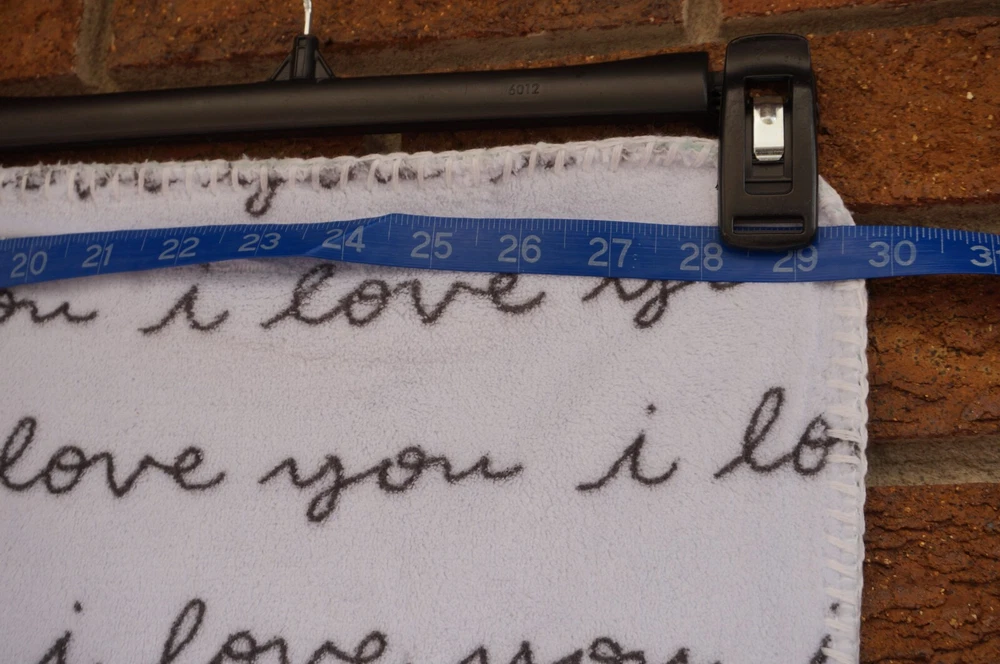 6012
20 21 22 23 24 25 26 27 28 29 30
i love
love you i lo
i love you i